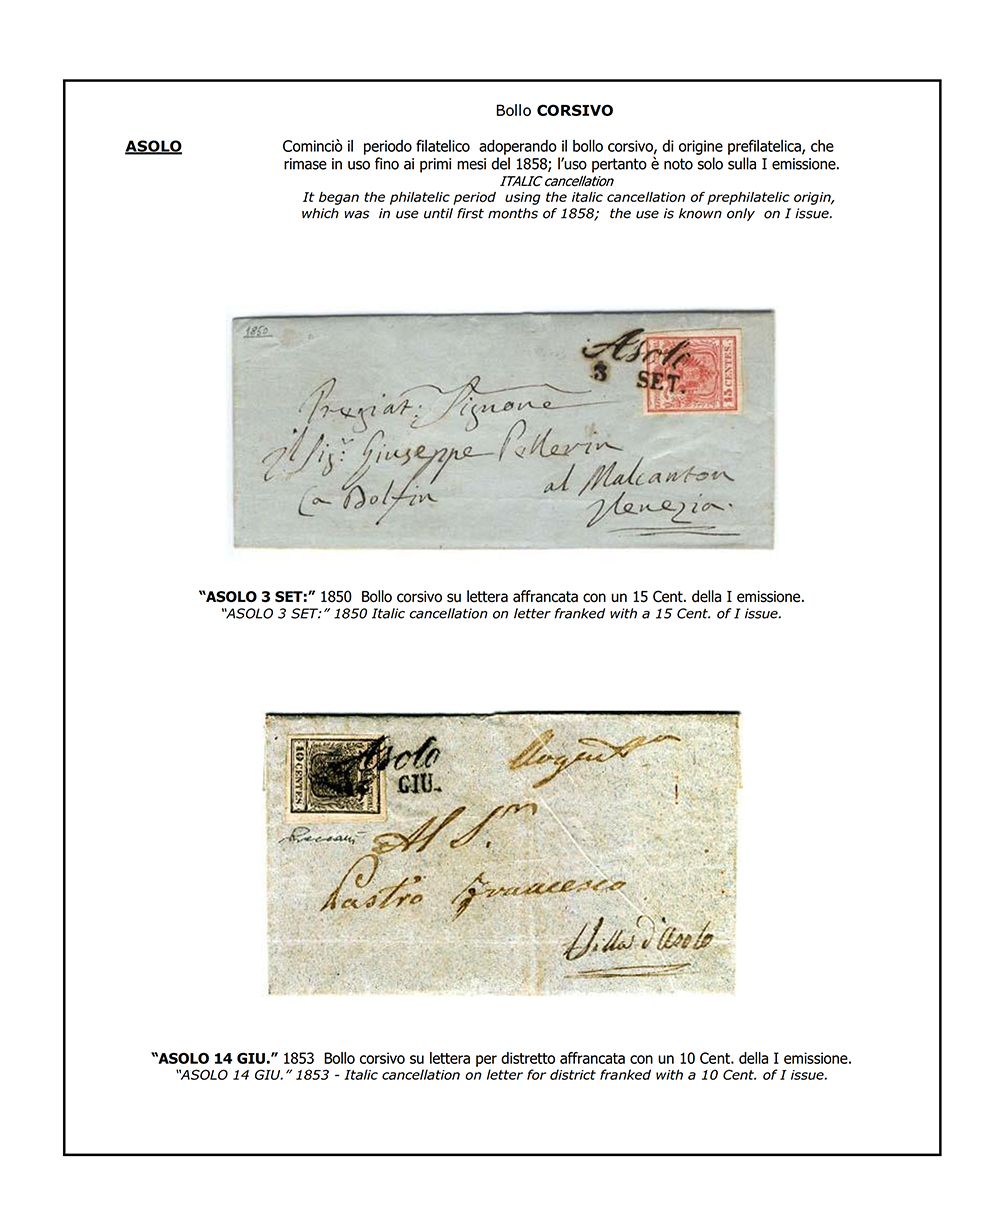 Bollo CORSIVO
ASOLO
Cominciò il periodo filatelico adoperando il bollo corsivo, di origine prefilatelica, che
rimase in uso fino ai primi mesi del 1858; l’uso pertanto è noto solo sulla I emissione.
ITALIC cancellation
It began the philatelic period using the italic cancellation of prephilatelic origin,
which was in use until first months of 1858; the use is known only on I issue.
1850
Asolo
3 SET.
15 CENTES.
Pregiat: Signore
il Sigr. Giuseppe Pellerin
Ca Dolfin al Malcanton
Venezia.
“ASOLO 3 SET:” 1850 Bollo corsivo su lettera affrancata con un 15 Cent. della I emissione.
“ASOLO 3 SET:” 1850 Italic cancellation on letter franked with a 15 Cent. of I issue.
10 CENTES.
Asolo
GIU.
Al S.
Francesco
Villa d'Asolo
“ASOLO 14 GIU.” 1853 Bollo corsivo su lettera per distretto affrancata con un 10 Cent. della I emissione.
“ASOLO 14 GIU.” 1853 - Italic cancellation on letter for district franked with a 10 Cent. of I issue.